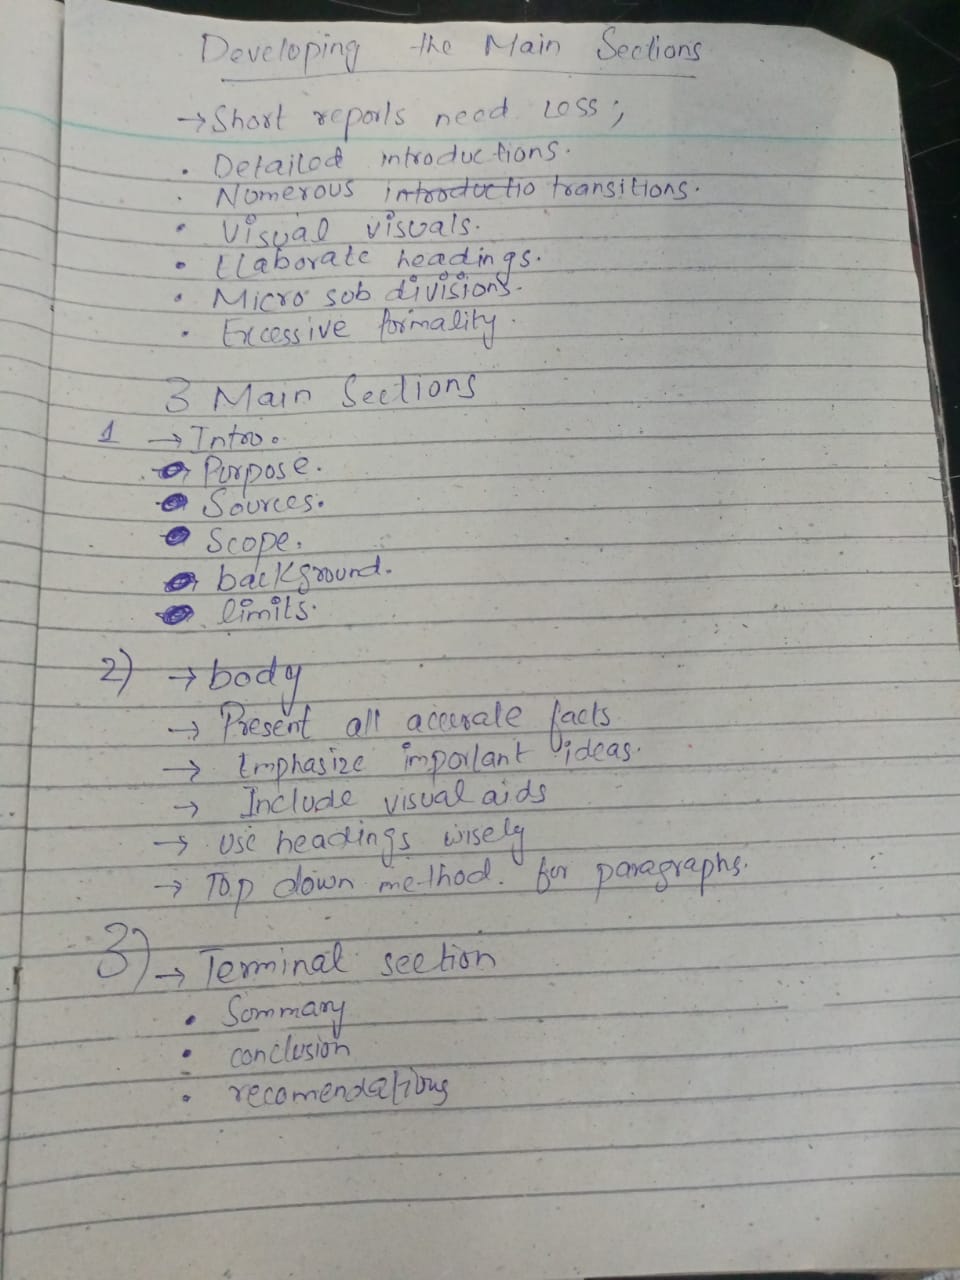 Developing the Main Sections
→ Short reports need Loss;
• Detailed introductions.
• Numerous introductio transitions.
• Visual visuals.
• Elaborate headings.
• Micro sub divisions.
• Excessive formality.
3 Main Sections
1 → Intro.
• Purpose.
• Sources.
• Scope.
• background.
• limits.
2) → body
→ Present all accurate facts
→ Emphasize important ideas.
→ Include visual aids
→ Use headings wisely
→ Top down method. for paragraphs.
3) → Terminal section
• Summary
• conclusion
• recomendations